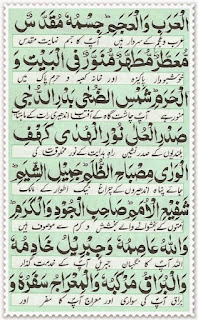 الْعَرَبِ وَالْعَجَمِ جِسْمُهٗ مُقَدَّسٌ
عرب و عجم کے سردار ہیں آپ کا جسم نہایت مقدس
مُّعَطَّرٌ مُّطَهَّرٌ مُّنَوَّرٌ فِي الْبَيْتِ وَ
خوشبودار پاکیزہ اور خانہ کعبہ و حرم پاک میں
الْحَرَمِ شَمْسِ الضُّحٰى بَدْرِ الدُّجٰى
منور ہے آپ چاشت گاہ کے آفتاب اندھیری رات کے ماہتاب
صَدْرِ الْعُلٰى نُوْرِ الْهُدٰى كَهْفِ
بلندیوں کے صدر نشین راہ ہدایت کے نور مخلوقات کی
الْوَرٰى مِصْبَاحِ الظُّلَمِ جَمِيْلِ الشِّيَمِ
جائے پناہ اندھیروں کے چراغ نیک اطوار کے مالک
شَفِيْعِ الْاُمَمِ صَاحِبِ الْجُوْدِ وَالْكَرَمِ
امتوں کے بخشوانے والے بخشش و کرم سے موصوف ہیں
وَاللّٰهُ عَاصِمُهٗ وَجِبْرِيْلُ خَادِمُهٗ
اللہ آپ کا نگہبان جبریل آپ کے خدمت گزار
وَالْبُرَاقُ مَرْكَبُهٗ وَالْمِعْرَاجُ سَفَرُهٗ وَ
براق آپ کی سواری اور معراج آپ کا سفر اور